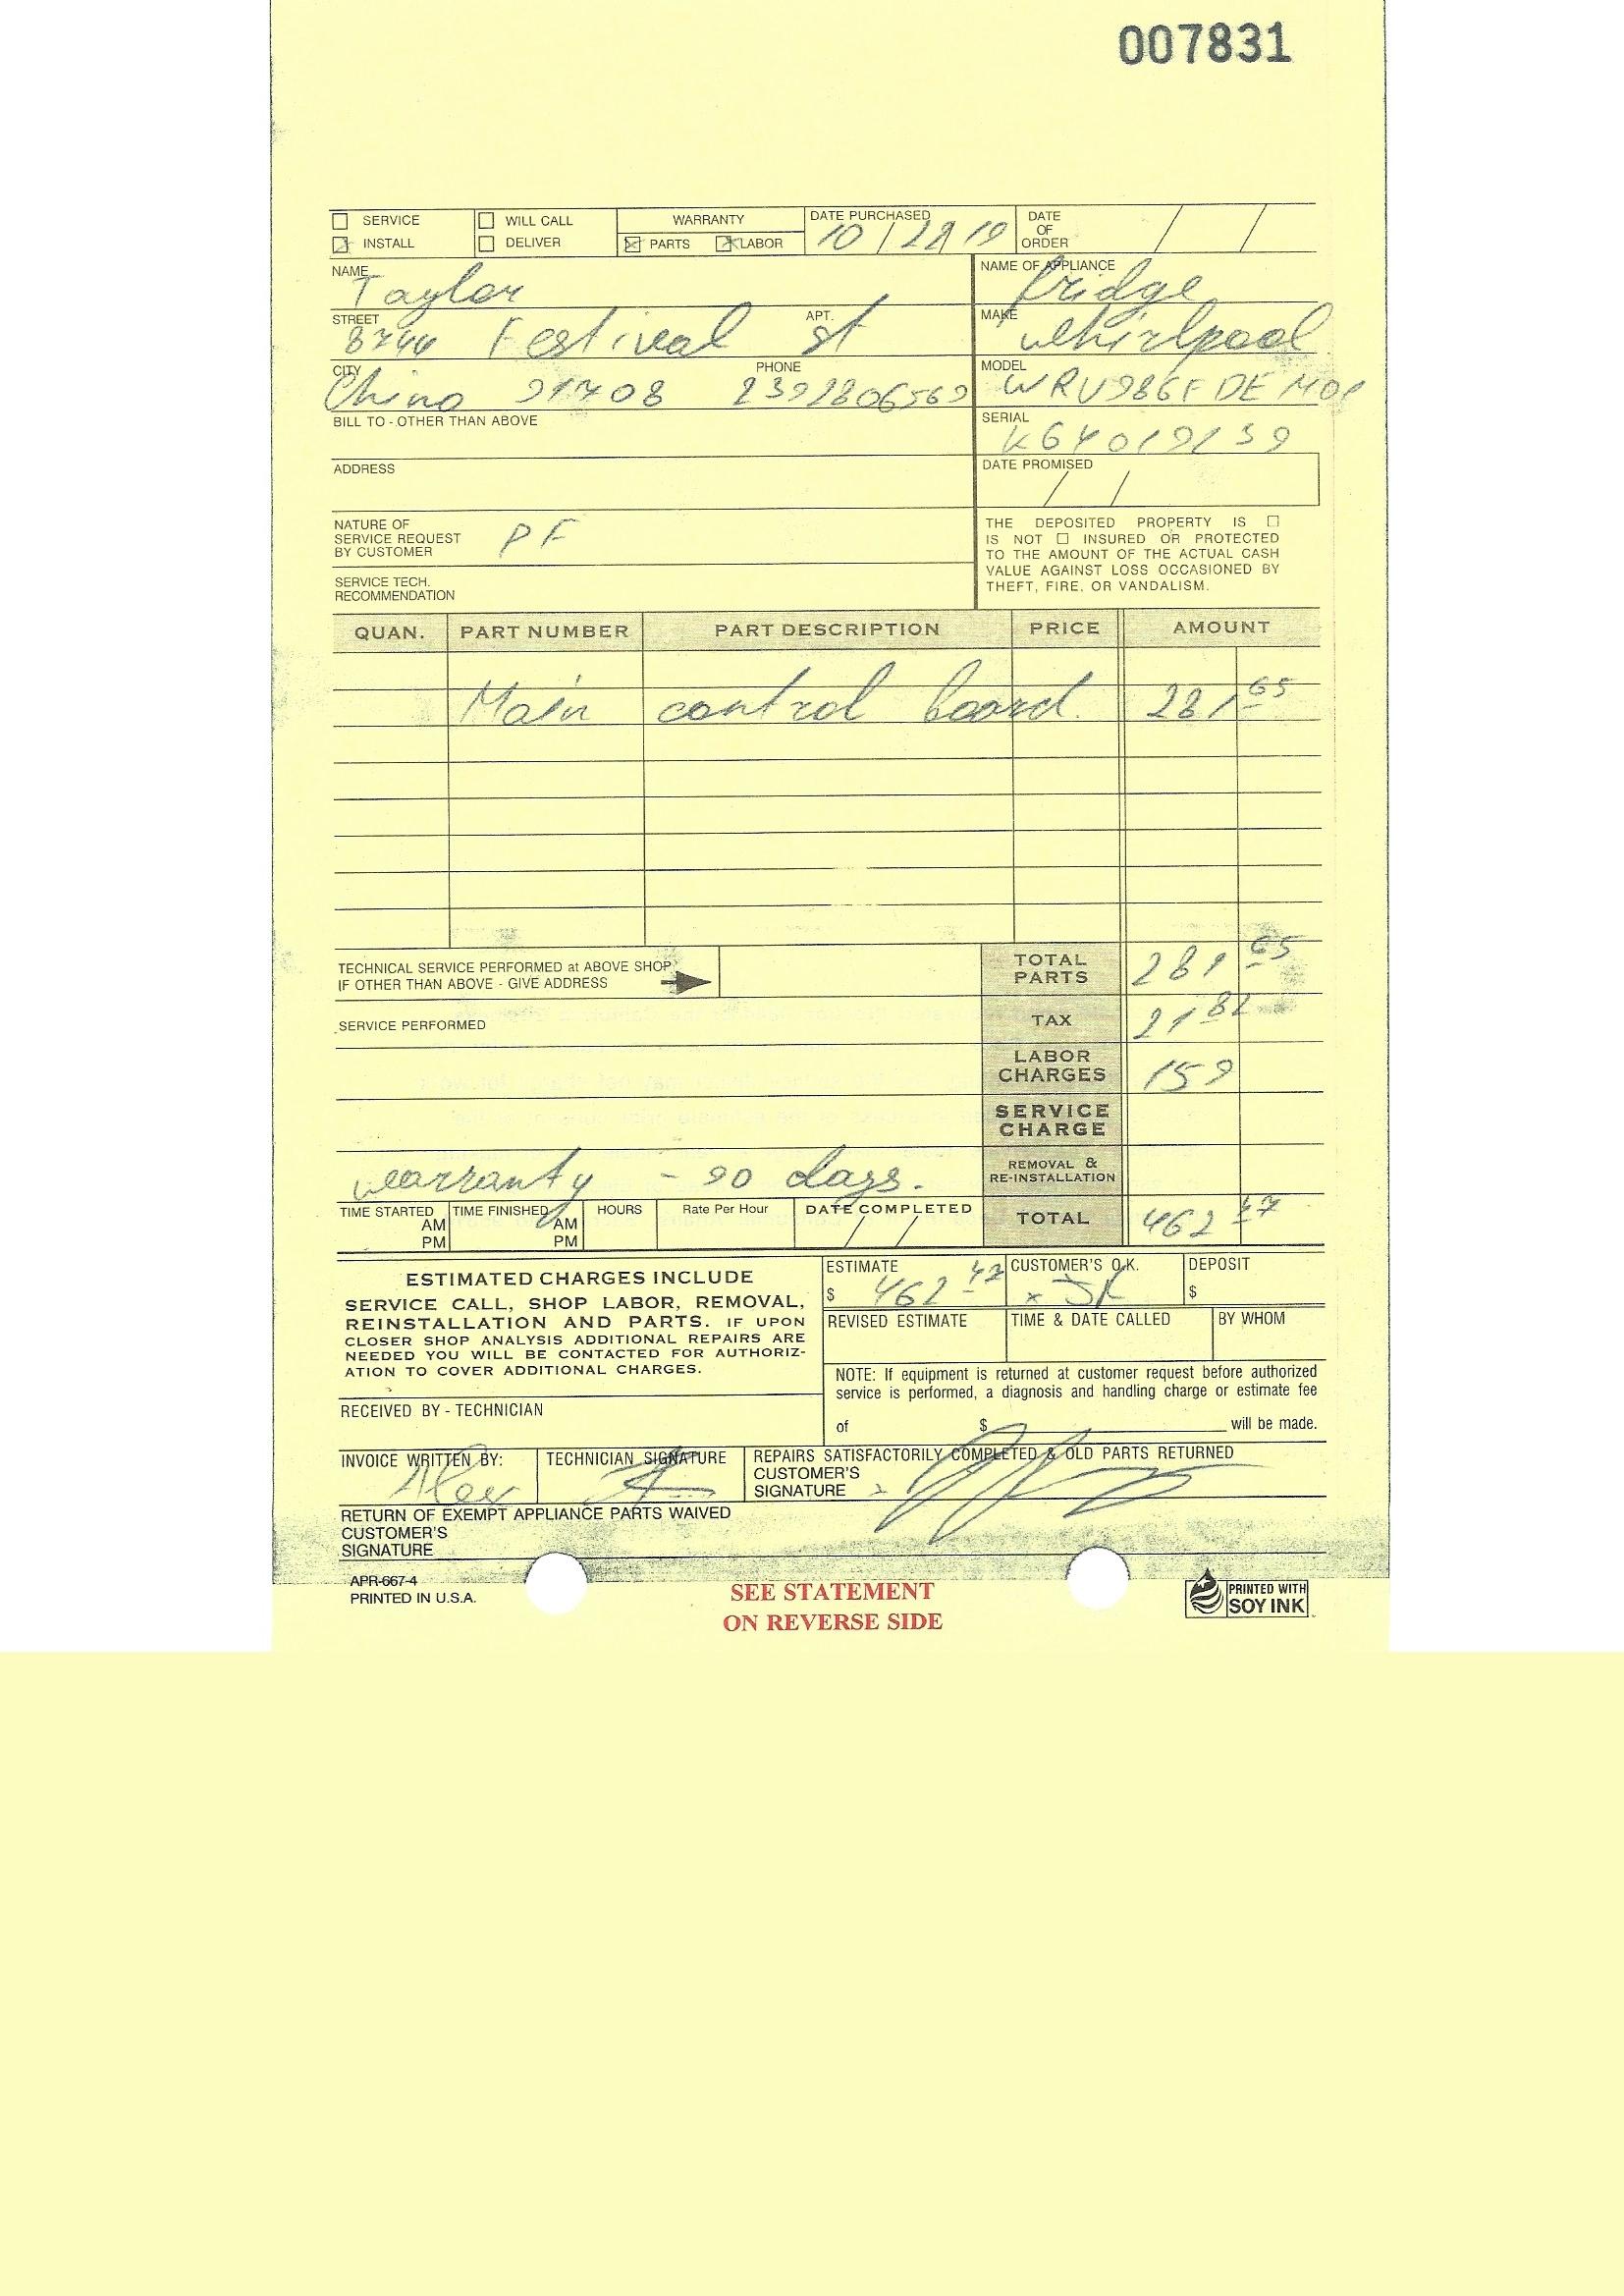 007831
SERVICE WILL CALL WARRANTY DATE PURCHASED DATE OF ORDER
INSTALL DELIVER PARTS LABOR 10/28/19
NAME Taylor NAME OF APPLIANCE fridge
STREET Festival APT. st MAKE whirlpool
CITY Chino 91708 PHONE 2392806569 MODEL
BILL TO - OTHER THAN ABOVE SERIAL
ADDRESS DATE PROMISED / /
NATURE OF
SERVICE REQUEST PF
BY CUSTOMER
SERVICE TECH.
RECOMMENDATION
THE DEPOSITED PROPERTY IS
IS NOT INSURED OR PROTECTED
TO THE AMOUNT OF THE ACTUAL CASH
VALUE AGAINST LOSS OCCASIONED BY
THEFT, FIRE, OR VANDALISM.
QUAN. PART NUMBER PART DESCRIPTION PRICE AMOUNT
Main control board. 281 65
TECHNICAL SERVICE PERFORMED at ABOVE SHOP
IF OTHER THAN ABOVE - GIVE ADDRESS
TOTAL PARTS 281 65
SERVICE PERFORMED
TAX 21 82
LABOR CHARGES 159
SERVICE CHARGE
REMOVAL & RE-INSTALLATION
warranty - 90 days.
TIME STARTED AM PM TIME FINISHED AM PM HOURS Rate Per Hour DATE COMPLETED / /
TOTAL 462 47
ESTIMATED CHARGES INCLUDE
SERVICE CALL, SHOP LABOR, REMOVAL,
REINSTALLATION AND PARTS. IF UPON
CLOSER SHOP ANALYSIS ADDITIONAL REPAIRS ARE
NEEDED YOU WILL BE CONTACTED FOR AUTHORIZ-
ATION TO COVER ADDITIONAL CHARGES.
ESTIMATE $ 462 47 CUSTOMER'S O.K. x JK DEPOSIT $
REVISED ESTIMATE TIME & DATE CALLED BY WHOM
NOTE: If equipment is returned at customer request before authorized
service is performed, a diagnosis and handling charge or estimate fee
of $ will be made.
RECEIVED BY - TECHNICIAN
INVOICE WRITTEN BY: Alex TECHNICIAN SIGNATURE REPAIRS SATISFACTORILY COMPLETED & OLD PARTS RETURNED
CUSTOMER'S
SIGNATURE
RETURN OF EXEMPT APPLIANCE PARTS WAIVED
CUSTOMER'S
SIGNATURE
APR-667-4
PRINTED IN U.S.A.
SEE STATEMENT
ON REVERSE SIDE
PRINTED WITH
SOY INK